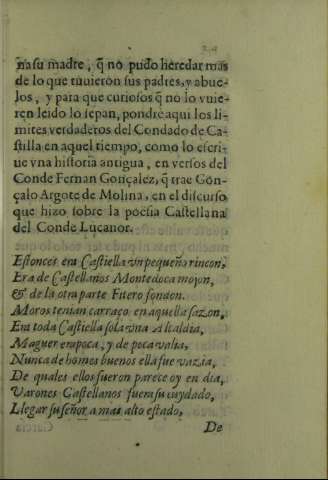 ña su madre, q̃ no pudo heredar mas
de lo que tuuieron sus padres, y abue-
los, y para que curiosos q̃ no lo vuie-
ren leido lo sepan, pondre aqui los li-
mites verdaderos del Condado de Ca-
stilla en aquel tiempo, como lo escri-
ue vna historia antigua, en versos del
Conde Fernan Gonçalez, q̃ trae Gon-
çalo Argote de Molina, en el discurso
que hizo sobre la poesia Castellana
del Conde Lucanor.
Estonces era Castiella vn pequeño rincon,
Era de Castellanos Montedoca mojon,
& de la otra parte Fitero fondon.
Moros tenian carraço en aquella sazon,
Era toda Castiella sola vna Alcaldia,
Maguer era poca, y de poca valia,
Nunca de homes buenos ella fue vazia,
De quales ellos fueron parece oy en dia,
Varones Castellanos fuera su cuydado,
Llegar su señor a mas alto estado,
De